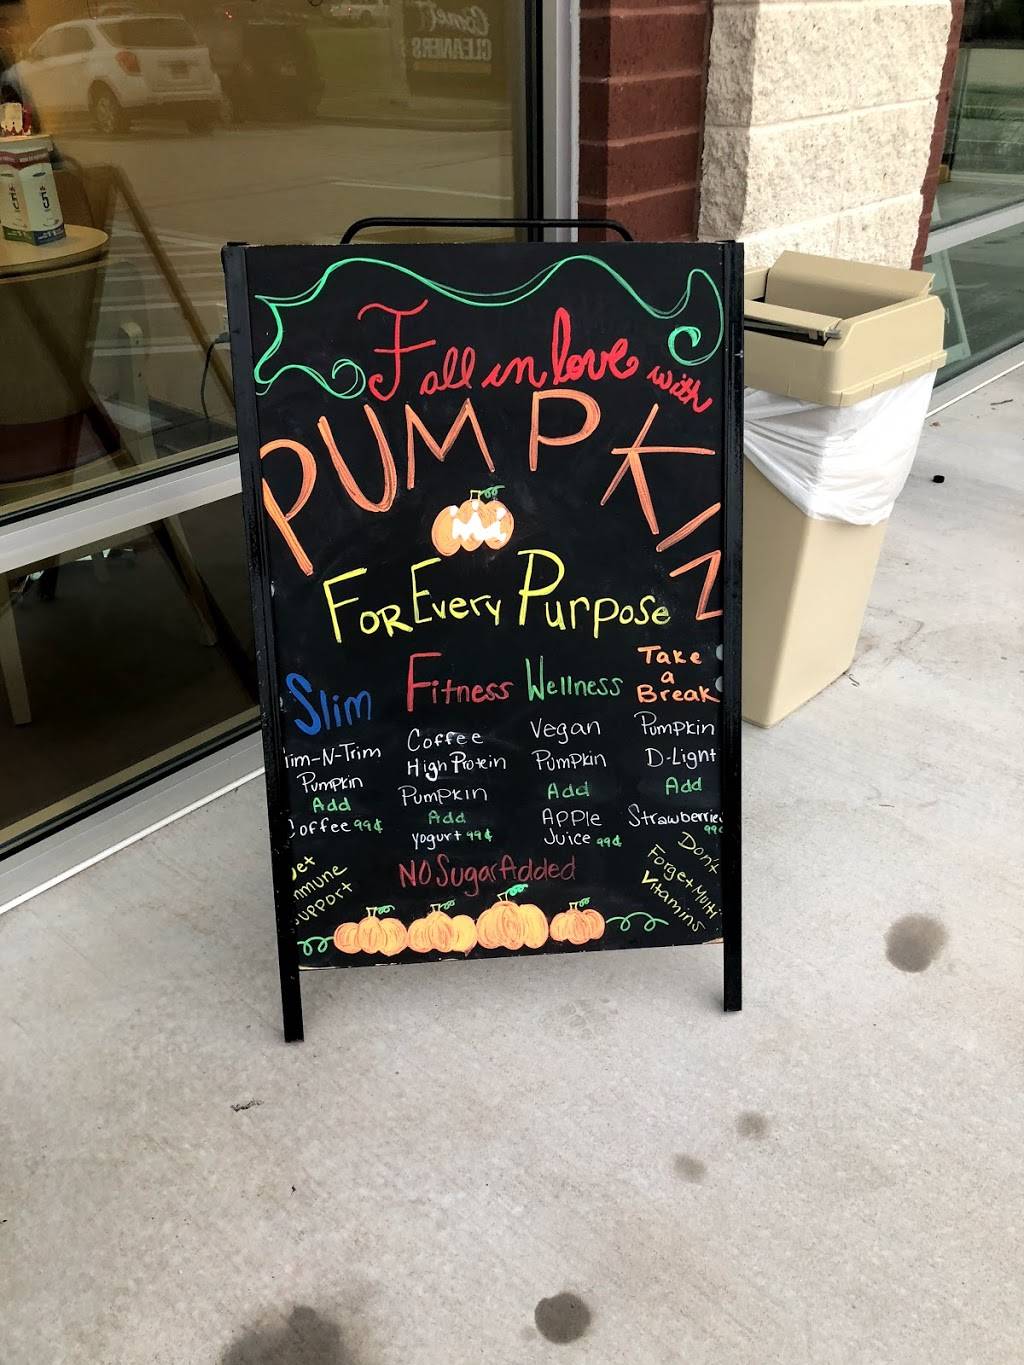 Comet
CLEANERS
Fall in love with
PUMPKIN
For Every Purpose
Slim
im-N-Trim
Pumpkin
Add
Coffee 99¢
Fitness
Coffee
High Protein
Pumpkin
Add
yogurt 99¢
Wellness
Vegan
Pumpkin
Add
Apple
Juice 99¢
Take
a
Break
Pumpkin
D-Light
Add
Strawberries
99¢
NO Sugar Added
et
mmune
upport
Don't
Forget Multi
Vitamins